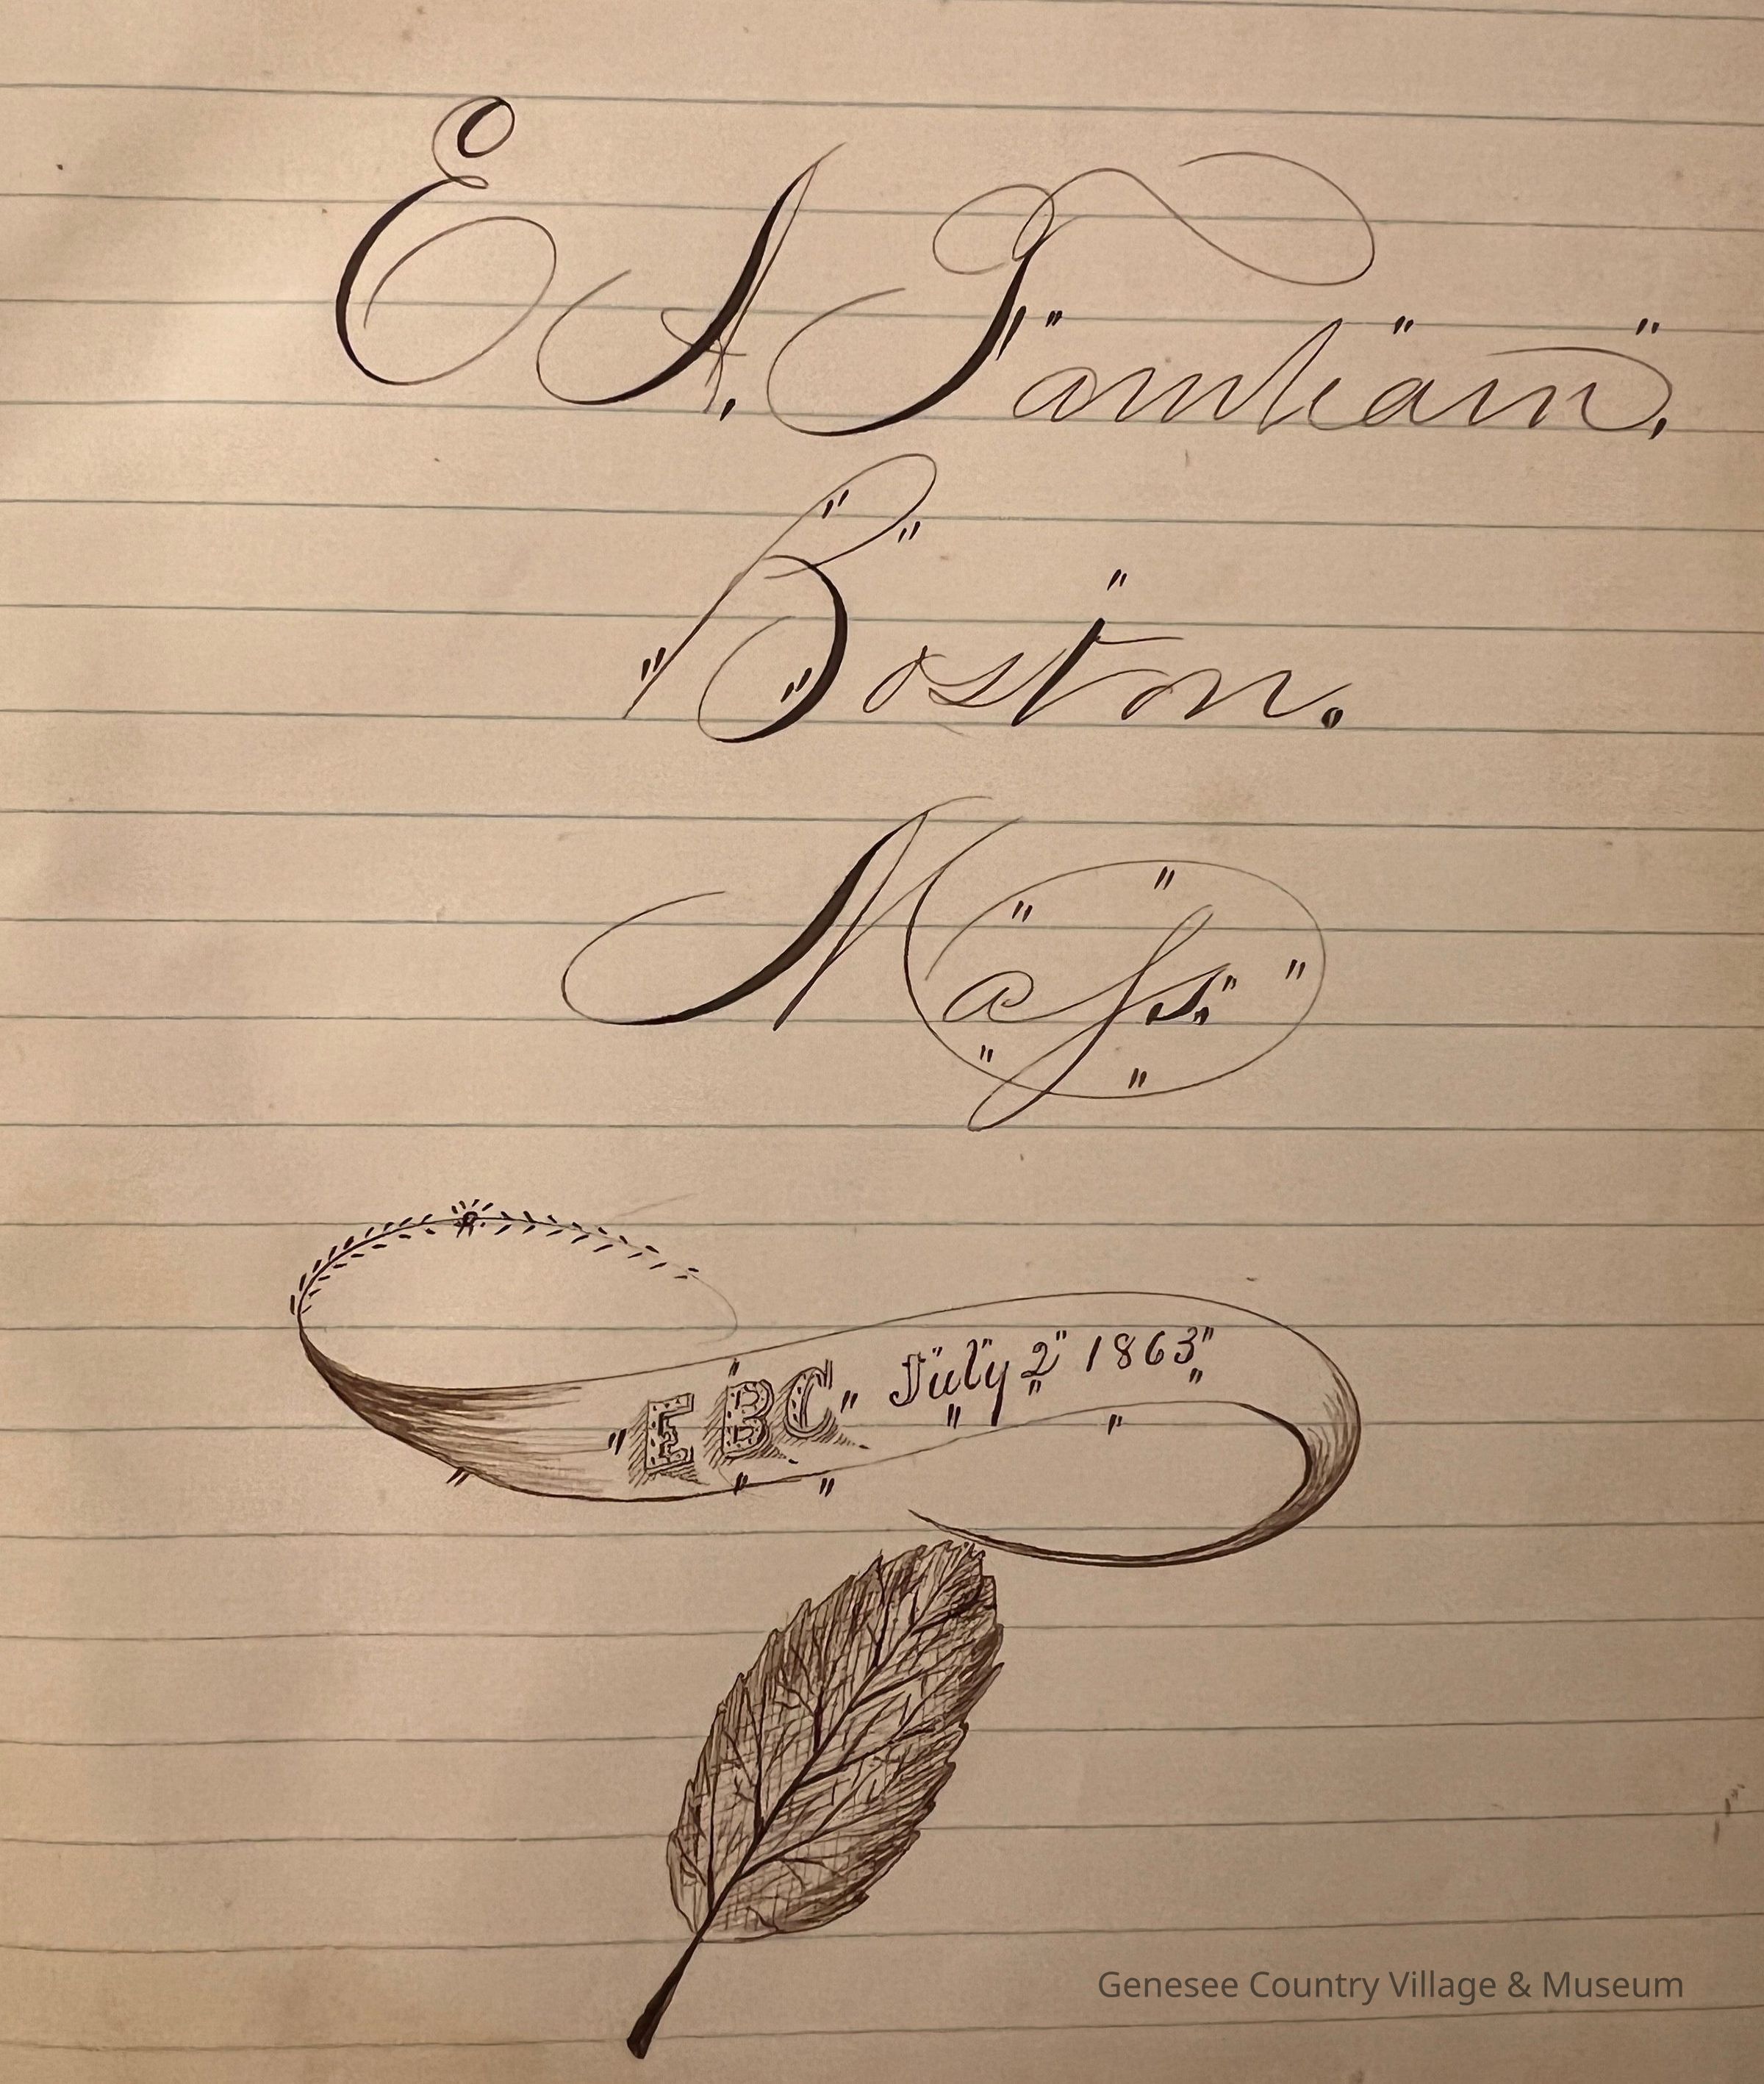 E A. Farnham.
Boston.
Maſs.
E B C, July 2 1863
Genesee Country Village & Museum